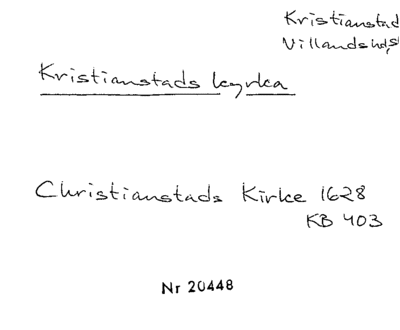 Kristianstad
Villands hd
Kristianstads kyrka
Christianstads Kirke 1628
KB 403
Nr 20448